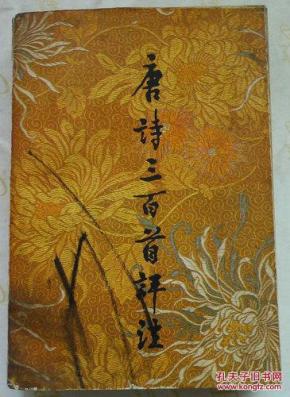 唐诗三百首评注
孔夫子旧书网